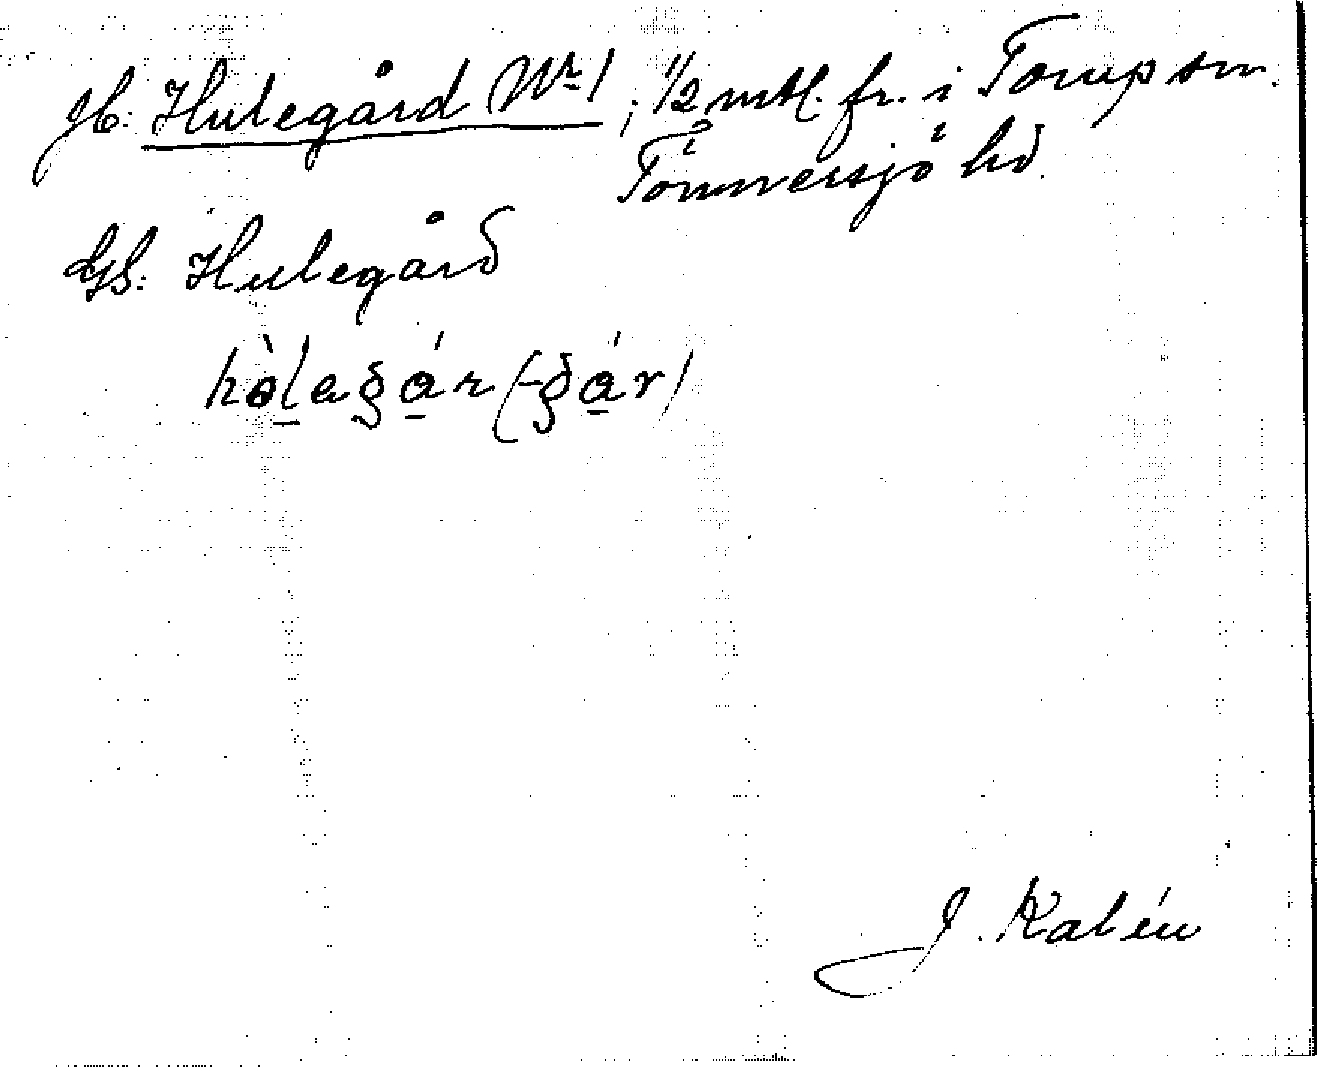 Jb: Hulegård Nr 1, 1/2 mtl. fr. i Torup sn.
Tönnersjö hd.
GS: Hulegård
J. Kalén